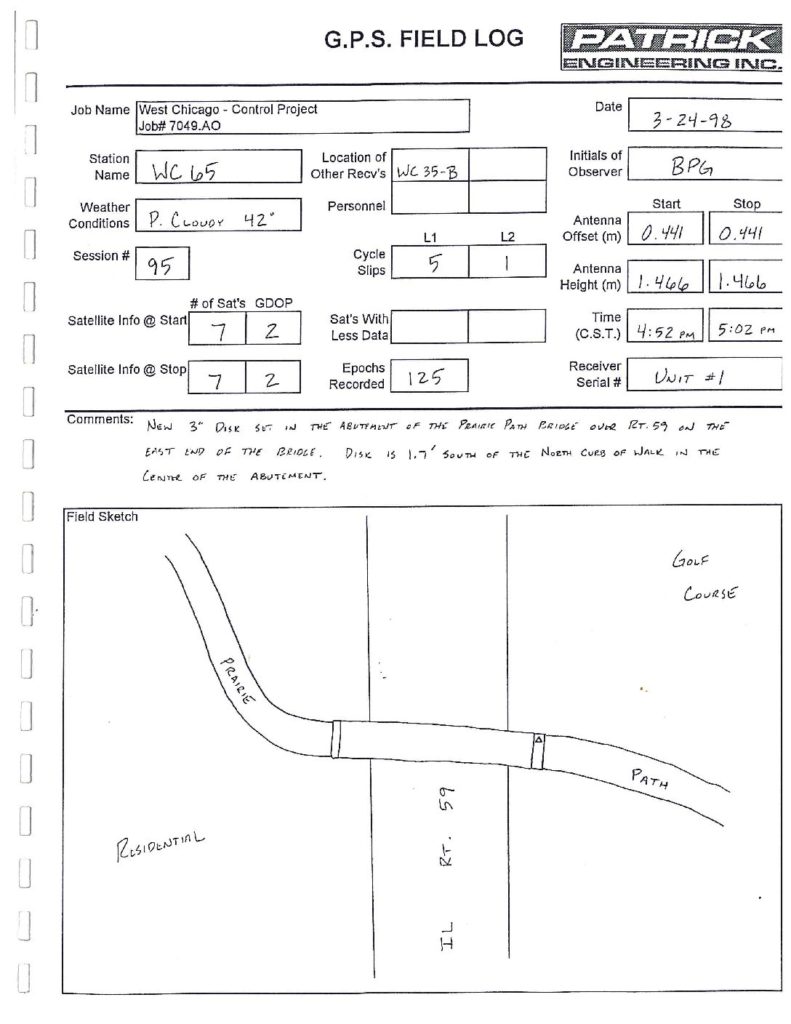 G.P.S. FIELD LOG
PATRICK
ENGINEERING INC.
Job Name West Chicago - Control Project
Job# 7049.AO
Date 3-24-98
Station Name WC 65
Location of Other Recv's WC 35-B
Initials of Observer BPG
Weather Conditions P. CLOUDY 42°
Personnel
Start Stop
Antenna Offset (m) 0.441 0.441
Session # 95
L1 L2
Cycle Slips 5 1
Antenna Height (m) 1.466 1.466
# of Sat's GDOP
Satellite Info @ Start 7 2
Sat's With Less Data
Time (C.S.T.) 4:52 PM 5:02 PM
Satellite Info @ Stop 7 2
Epochs Recorded 125
Receiver Serial # UNIT #1
Comments: NEW 3" DISK SET IN THE ABUTEMENT OF THE PRAIRIE PATH BRIDGE OVER RT. 59 ON THE
EAST END OF THE BRIDGE. DISK IS 1.7' SOUTH OF THE NORTH CURB OF WALK IN THE
CENTER OF THE ABUTEMENT.
Field Sketch
GOLF
COURSE
PRAIRIE
PATH
RESIDENTIAL
IL RT. 59